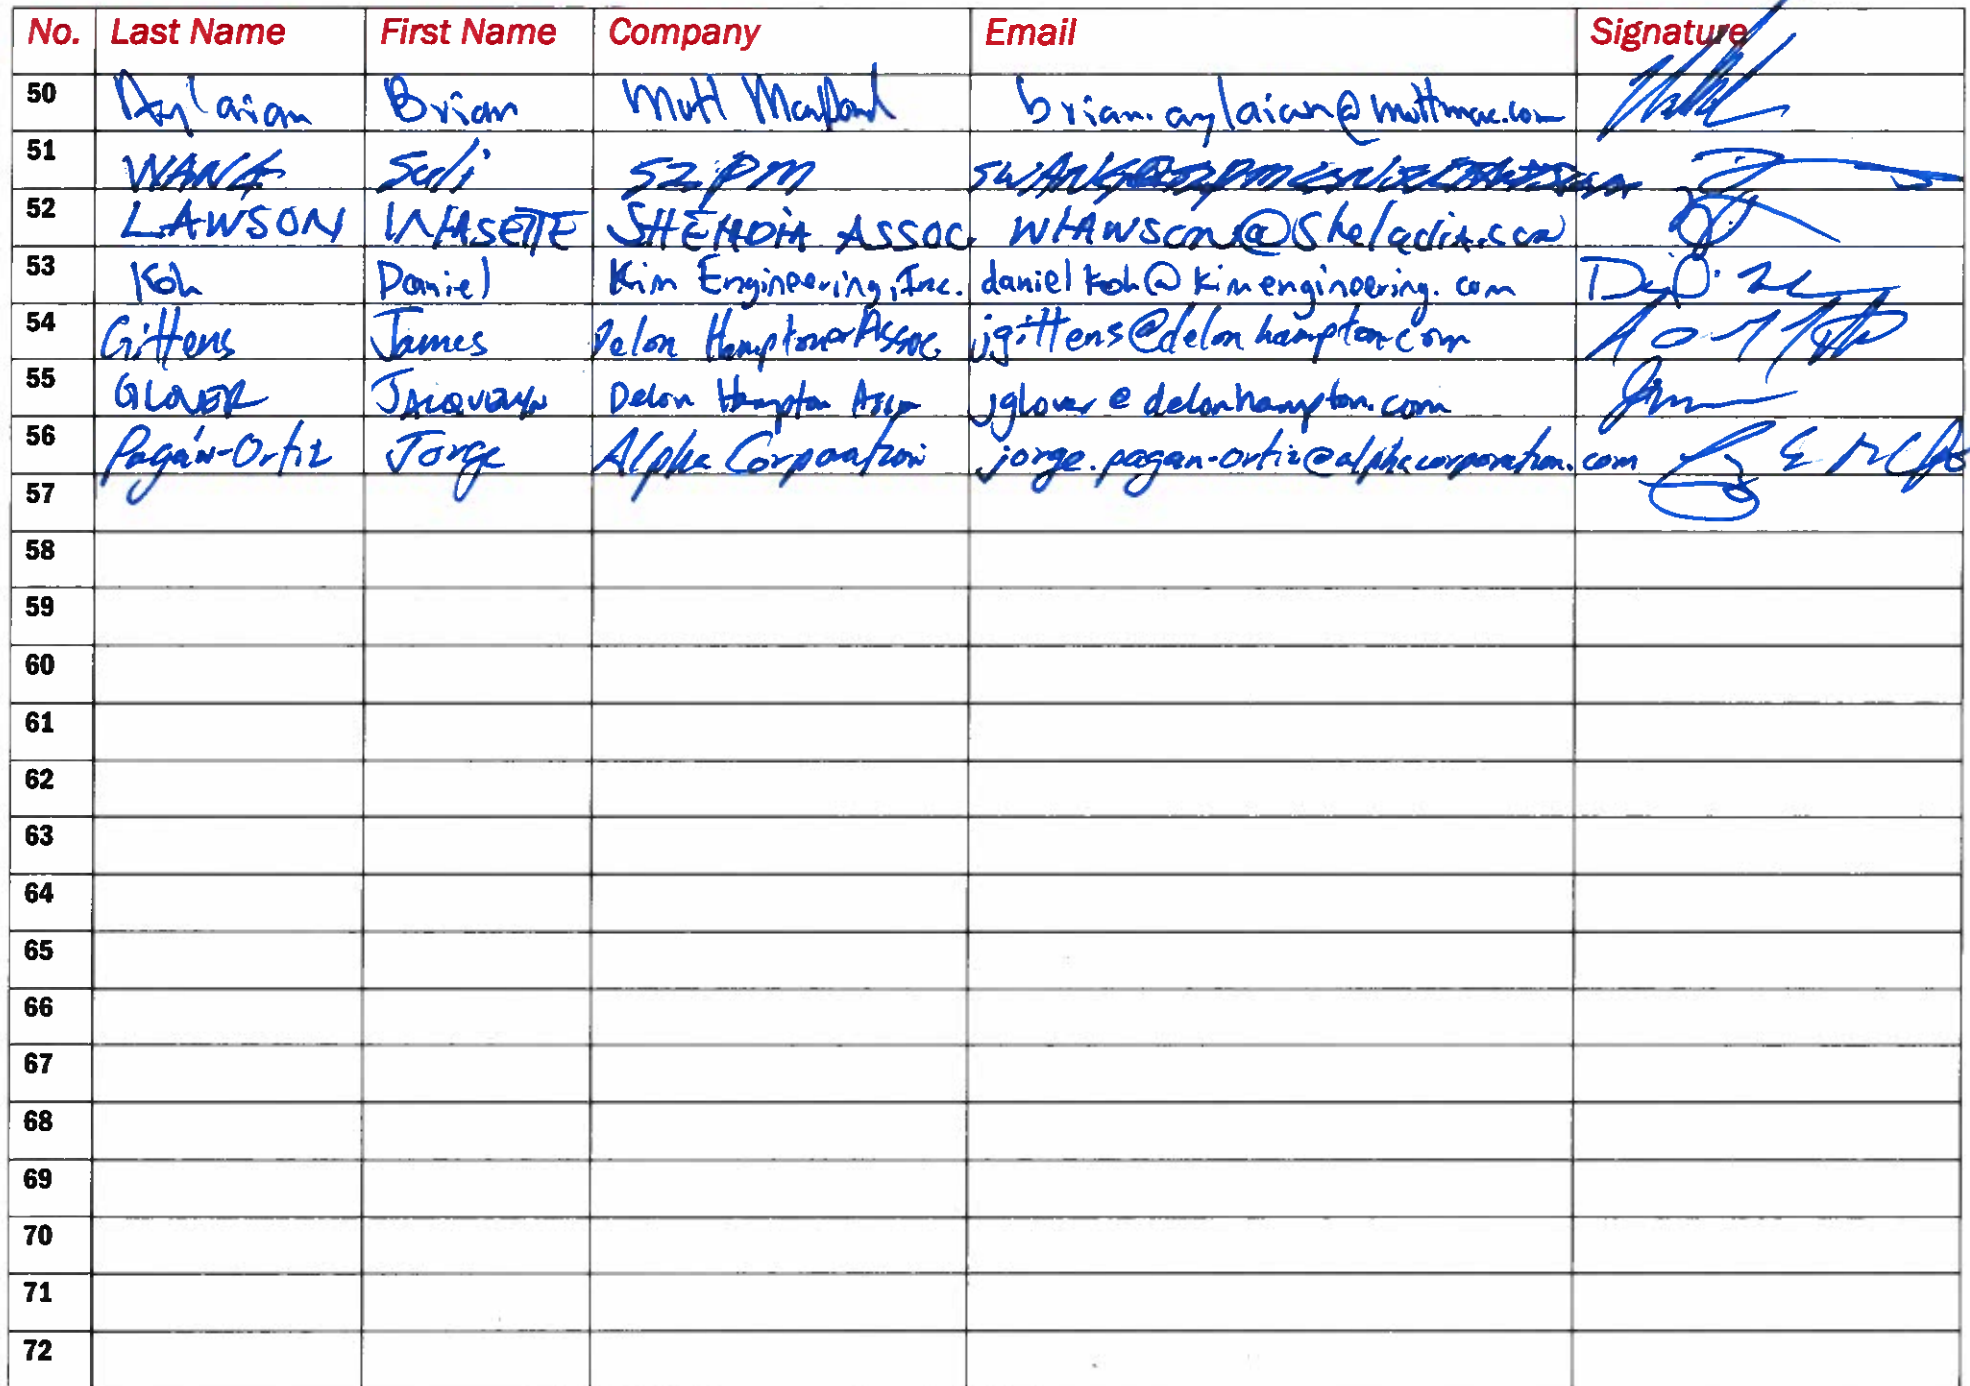 No. Last Name First Name Company Email Signature
50 Aylaian Brian Mott MacDonald brian.aylaian@mottmac.com
51 WANG Suli SZPM
52 LAWSON SHELADIA ASSOC. WLAWSON@Sheladia.com
53 Koh Daniel Kim Engineering, Inc. danielkoh@kimengineering.com
54 Gittens James Delon Hampton Assoc. jgittens@delonhampton.com
55 GLOVER JACQUELYN Delon Hampton Assoc jglover@delonhampton.com
56 Pagán-Ortiz Jorge Alpha Corporation jorge.pagan-ortiz@alphacorporation.com
57
58
59
60
61
62
63
64
65
66
67
68
69
70
71
72